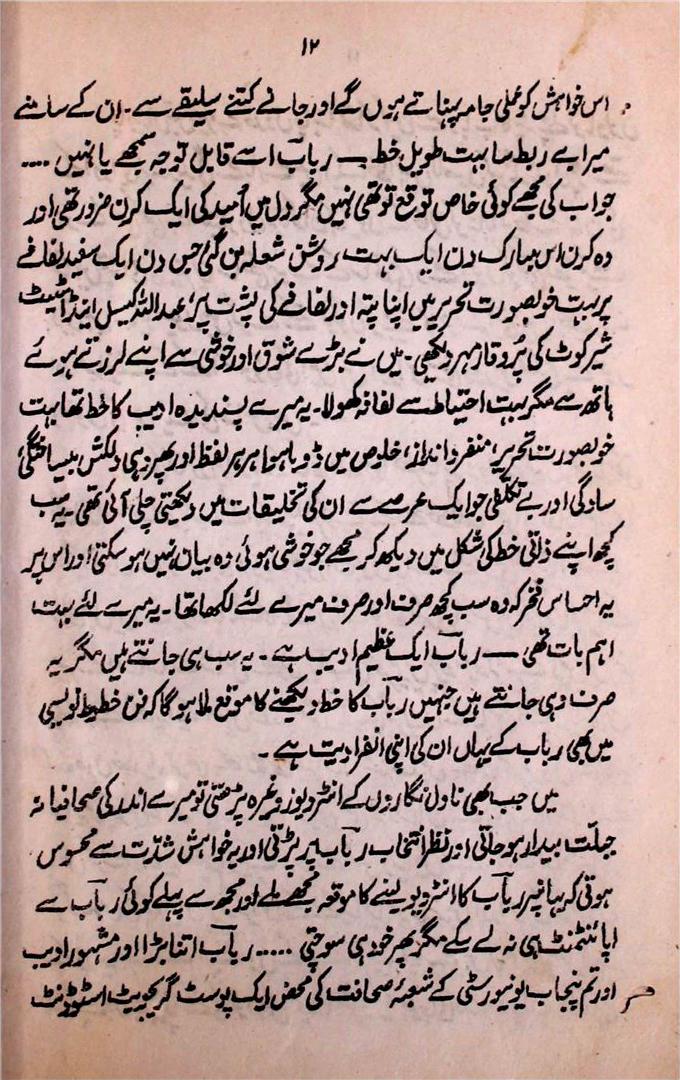 ۱۲
اس خواہش کو عملی جامہ پہناتے ہوں گے اور جانے کتنے سلیقے سے ۔ ان کے سامنے
میرا بے ربط سا بہت طویل خط ـــ ربابؔ اسے قابل توجہ سمجھے یا نہیں ....
جواب کی مجھے کوئی خاص توقع تو تھی نہیں مگر دل میں اُمید کی ایک کرن ضرور تھی اور
وہ کرن اس مبارک دن ایک بہت روشن شعلہ بن گئی جس دن ایک سفید لفافے
پر بہت خوبصورت تحریر میں اپنا پتہ اور لفافے کی پشت پر، عبداللہ کیسل اینڈ اسٹیٹ
شیر کوٹ کی پُروقار مہر دیکھی ۔ میں نے بڑے شوق اور خوشی سے اپنے لرزتے ہوئے
ہاتھ سے مگر بہت احتیاط سے لفافہ کھولا ۔ یہ میرے پسندیدہ ادیب کا خط تھا بہت
خوبصورت تحریر، منفرد انداز، خلوص میں ڈوبا ہوا ہر ہر لفظ اور پھر وہی دلکش بیساختگی
سادگی اور بے تکلفی جو ایک عرصے سے ان کی تخلیقات میں دیکھتی چلی آئی تھی ۔ یہ سب
کچھ اپنے ذاتی خط کی شکل میں دیکھ کر مجھے جو خوشی ہوئی وہ بیان نہیں ہو سکتی اور اس پر
یہ احساس فخر کہ وہ سب کچھ صرف اور صرف میرے لئے لکھا تھا ۔ یہ میرے لئے بہت
اہم بات تھی ـــ ربابؔ ایک عظیم ادیب ہے ۔ یہ سب ہی جانتے ہیں مگر یہ
صرف وہی جانتے ہیں جنہیں ربابؔ کا خط دیکھنے کا موقع ملا ہو گا کہ فن خطوط نویسی
میں بھی رباب کے یہاں ان کی اپنی انفرادیت ہے ۔
میں جب بھی ناول نگاروں کے انٹرویوز وغیرہ پڑھتی تو میرے اندر کی صحافیانہ
جبلّت بیدار ہو جاتی اور نظر انتخاب ربابؔ پر پڑتی اور یہ خواہش شدّت سے محسوس
ہوتی کہ ہانپر ربابؔ کا انٹرویو لینے کا موقعہ مجھے ملے اور مجھ سے پہلے کوئی ربابؔ سے
اپائنٹمنٹ ہی نہ لے سکے مگر پھر خود ہی سوچتی ..... ربابؔ اتنا بڑا اور مشہور ادیب
اور تم پنجاب یونیورسٹی کے شعبۂ صحافت کی محض ایک پوسٹ گریجویٹ اسٹوڈنٹ